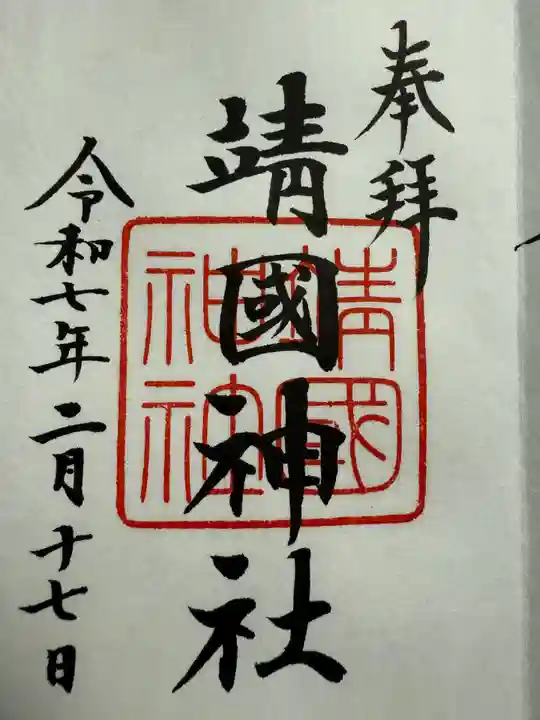 奉拜
靖國神社
靖國
神社
令和七年二月十七日